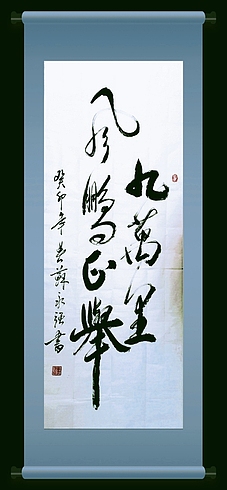 九萬里
風鵬正舉
癸卯年蘇永强書